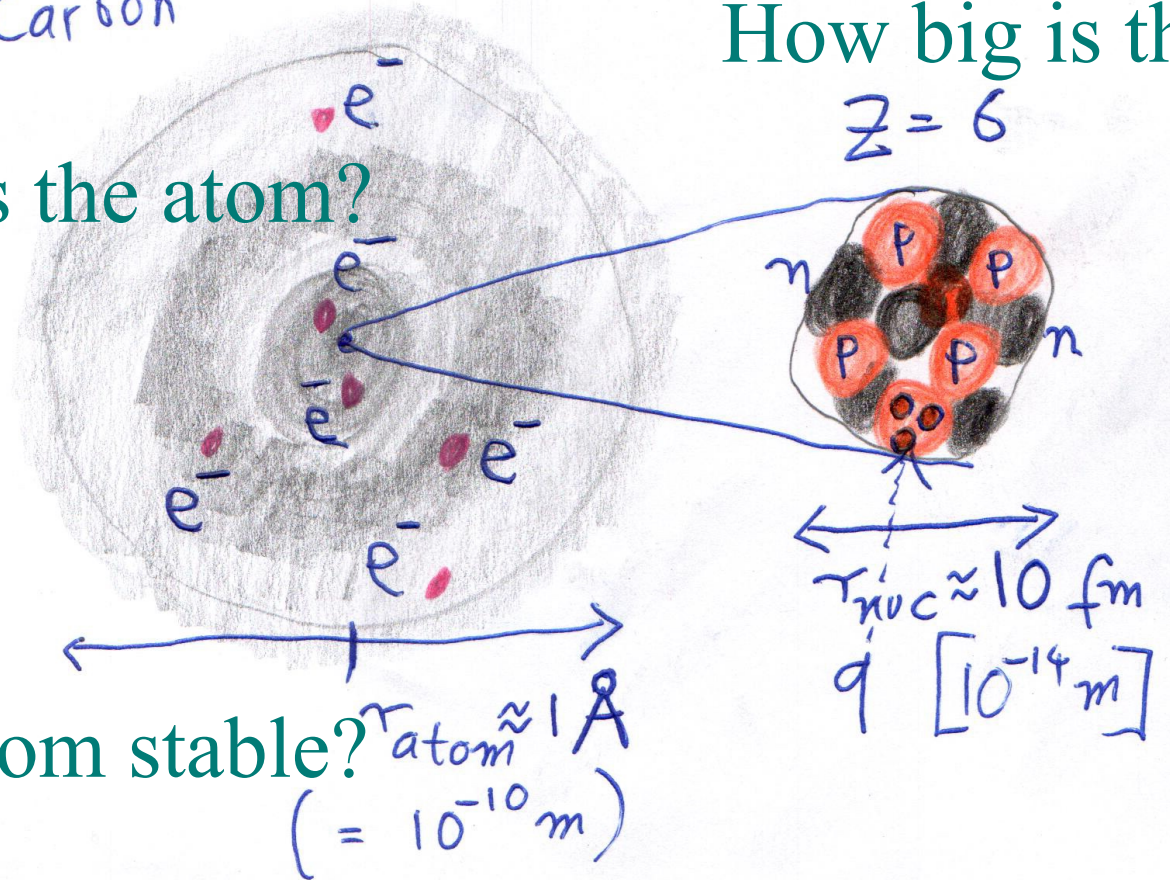 Carbon
How big is th
Z = 6
e⁻
s the atom?
e⁻
n
p
p
n
p
p
e⁻
e⁻
e⁻
e⁻
r_nuc ≈ 10 fm
q [10⁻¹⁴ m]
om stable?
r_atom ≈ 1 Å
( = 10⁻¹⁰ m )